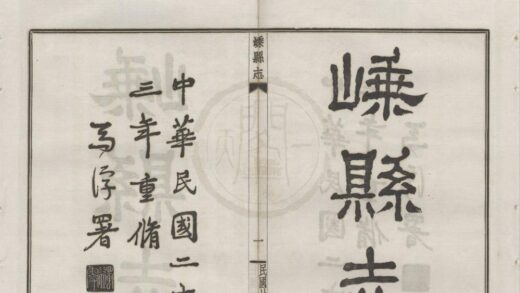 嵊縣志
嵊縣志
一
中華民國二十
三年重脩
馬浮署